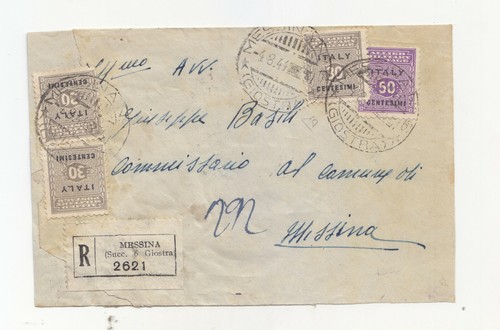 MESSINA
4.8.44
(GIOSTRA)
ITALY
30
CENTESIMI
ITALY
50
CENTESIMI
30
ITALY
CENTESIMI
30
ITALY
CENTESIMI
Avv.
Giuseppe Basile
Commissario al comune di
Messina
R
MESSINA
(Succ. 8 Giostra)
2621